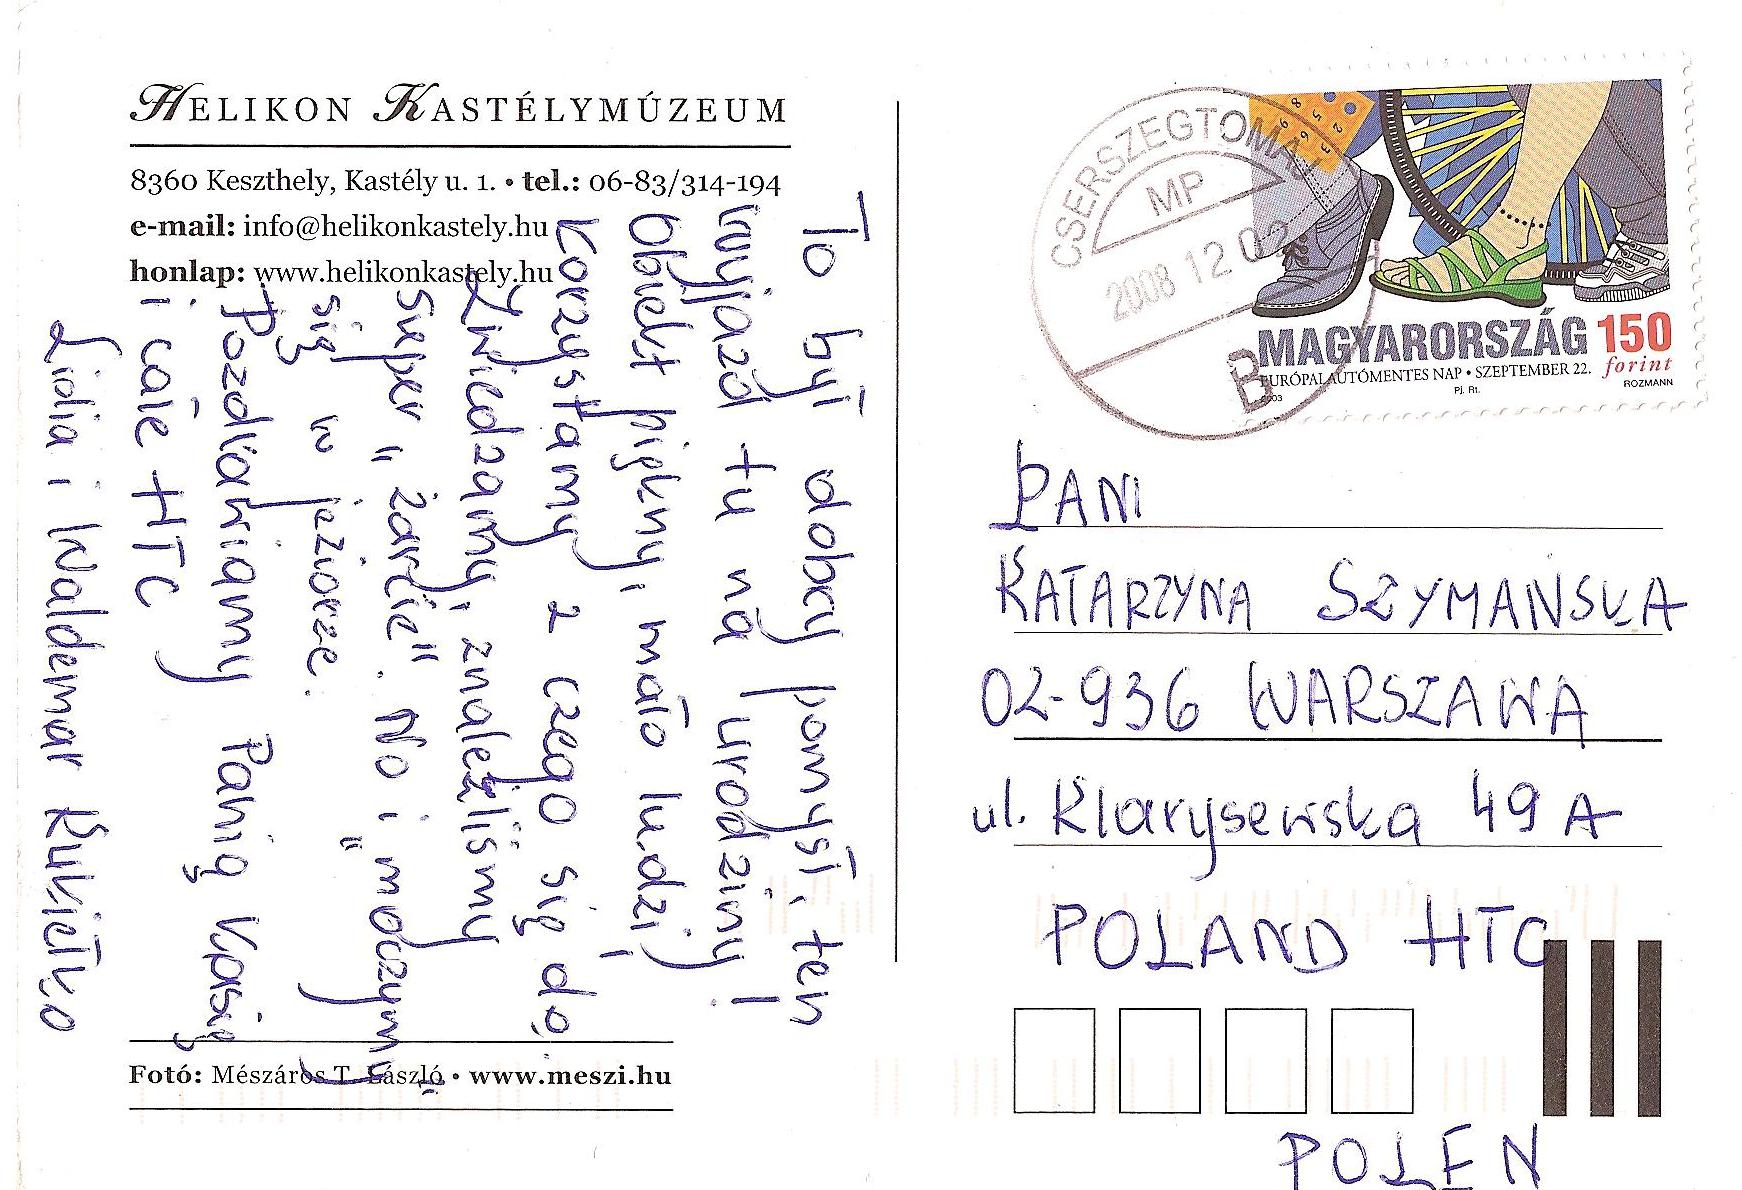 HELIKON KASTÉLYMÚZEUM
8360 Keszthely, Kastély u. 1. • tel.: 06-83/314-194
e-mail: info@helikonkastely.hu
honlap: www.helikonkastely.hu
To był dobry pomysł, ten
wyjazd tu na urodziny!
Obiekt piękny, mało ludzi,
Korzystamy z czego się da.
Zwiedzamy, znaleźlismy
super „żarcie". No i „moczymy"
się w jeziorze.
Pozdrawiamy Panią Kasię
i całe HTC
Lidia i Waldemar Kukiełko
Fotó: Mészáros T. László • www.meszi.hu
CSERSZEGTOMAJ
MP
2008 12 02
B
MAGYARORSZÁG 150
forint
EURÓPAI AUTÓMENTES NAP • SZEPTEMBER 22.
ROZMANN
Pj. Rt.
2003
PANI
KATARZYNA SZYMAŃSKA
02-936 WARSZAWA
ul. Klarysewska 49 A
POLAND HTC
POLEN